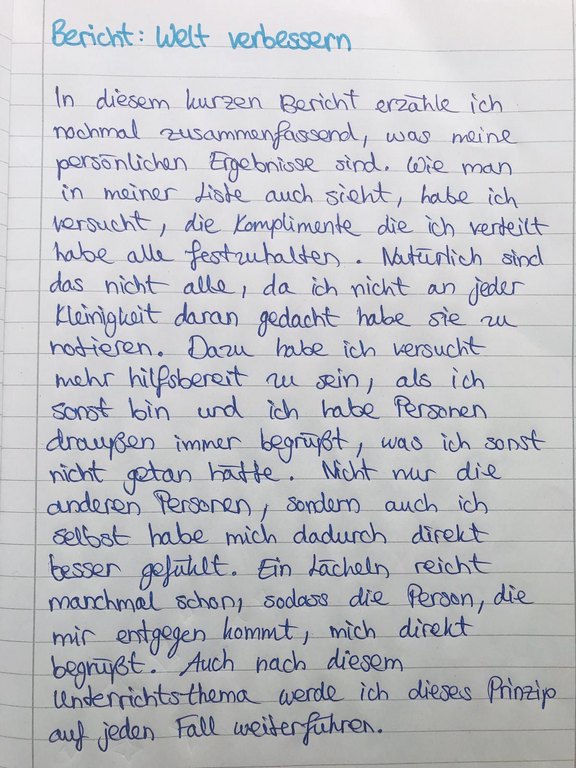 Bericht: Welt verbessern
In diesem kurzen Bericht erzähle ich
nochmal zusammenfassend, was meine
persönlichen Ergebnisse sind. Wie man
in meiner Liste auch sieht, habe ich
versucht, die Komplimente die ich verteilt
habe alle festzuhalten. Natürlich sind
das nicht alle, da ich nicht an jeder
Kleinigkeit daran gedacht habe sie zu
notieren. Dazu habe ich versucht
mehr hilfsbereit zu sein, als ich
sonst bin und ich habe Personen
draußen immer begrüßt, was ich sonst
nicht getan hätte. Nicht nur die
anderen Personen, sondern auch ich
selbst habe mich dadurch direkt
besser gefühlt. Ein Lächeln reicht
manchmal schon, sodass die Person, die
mir entgegen kommt, mich direkt
begrüßt. Auch nach diesem
Unterrichtsthema werde ich dieses Prinzip
auf jeden Fall weiterführen.